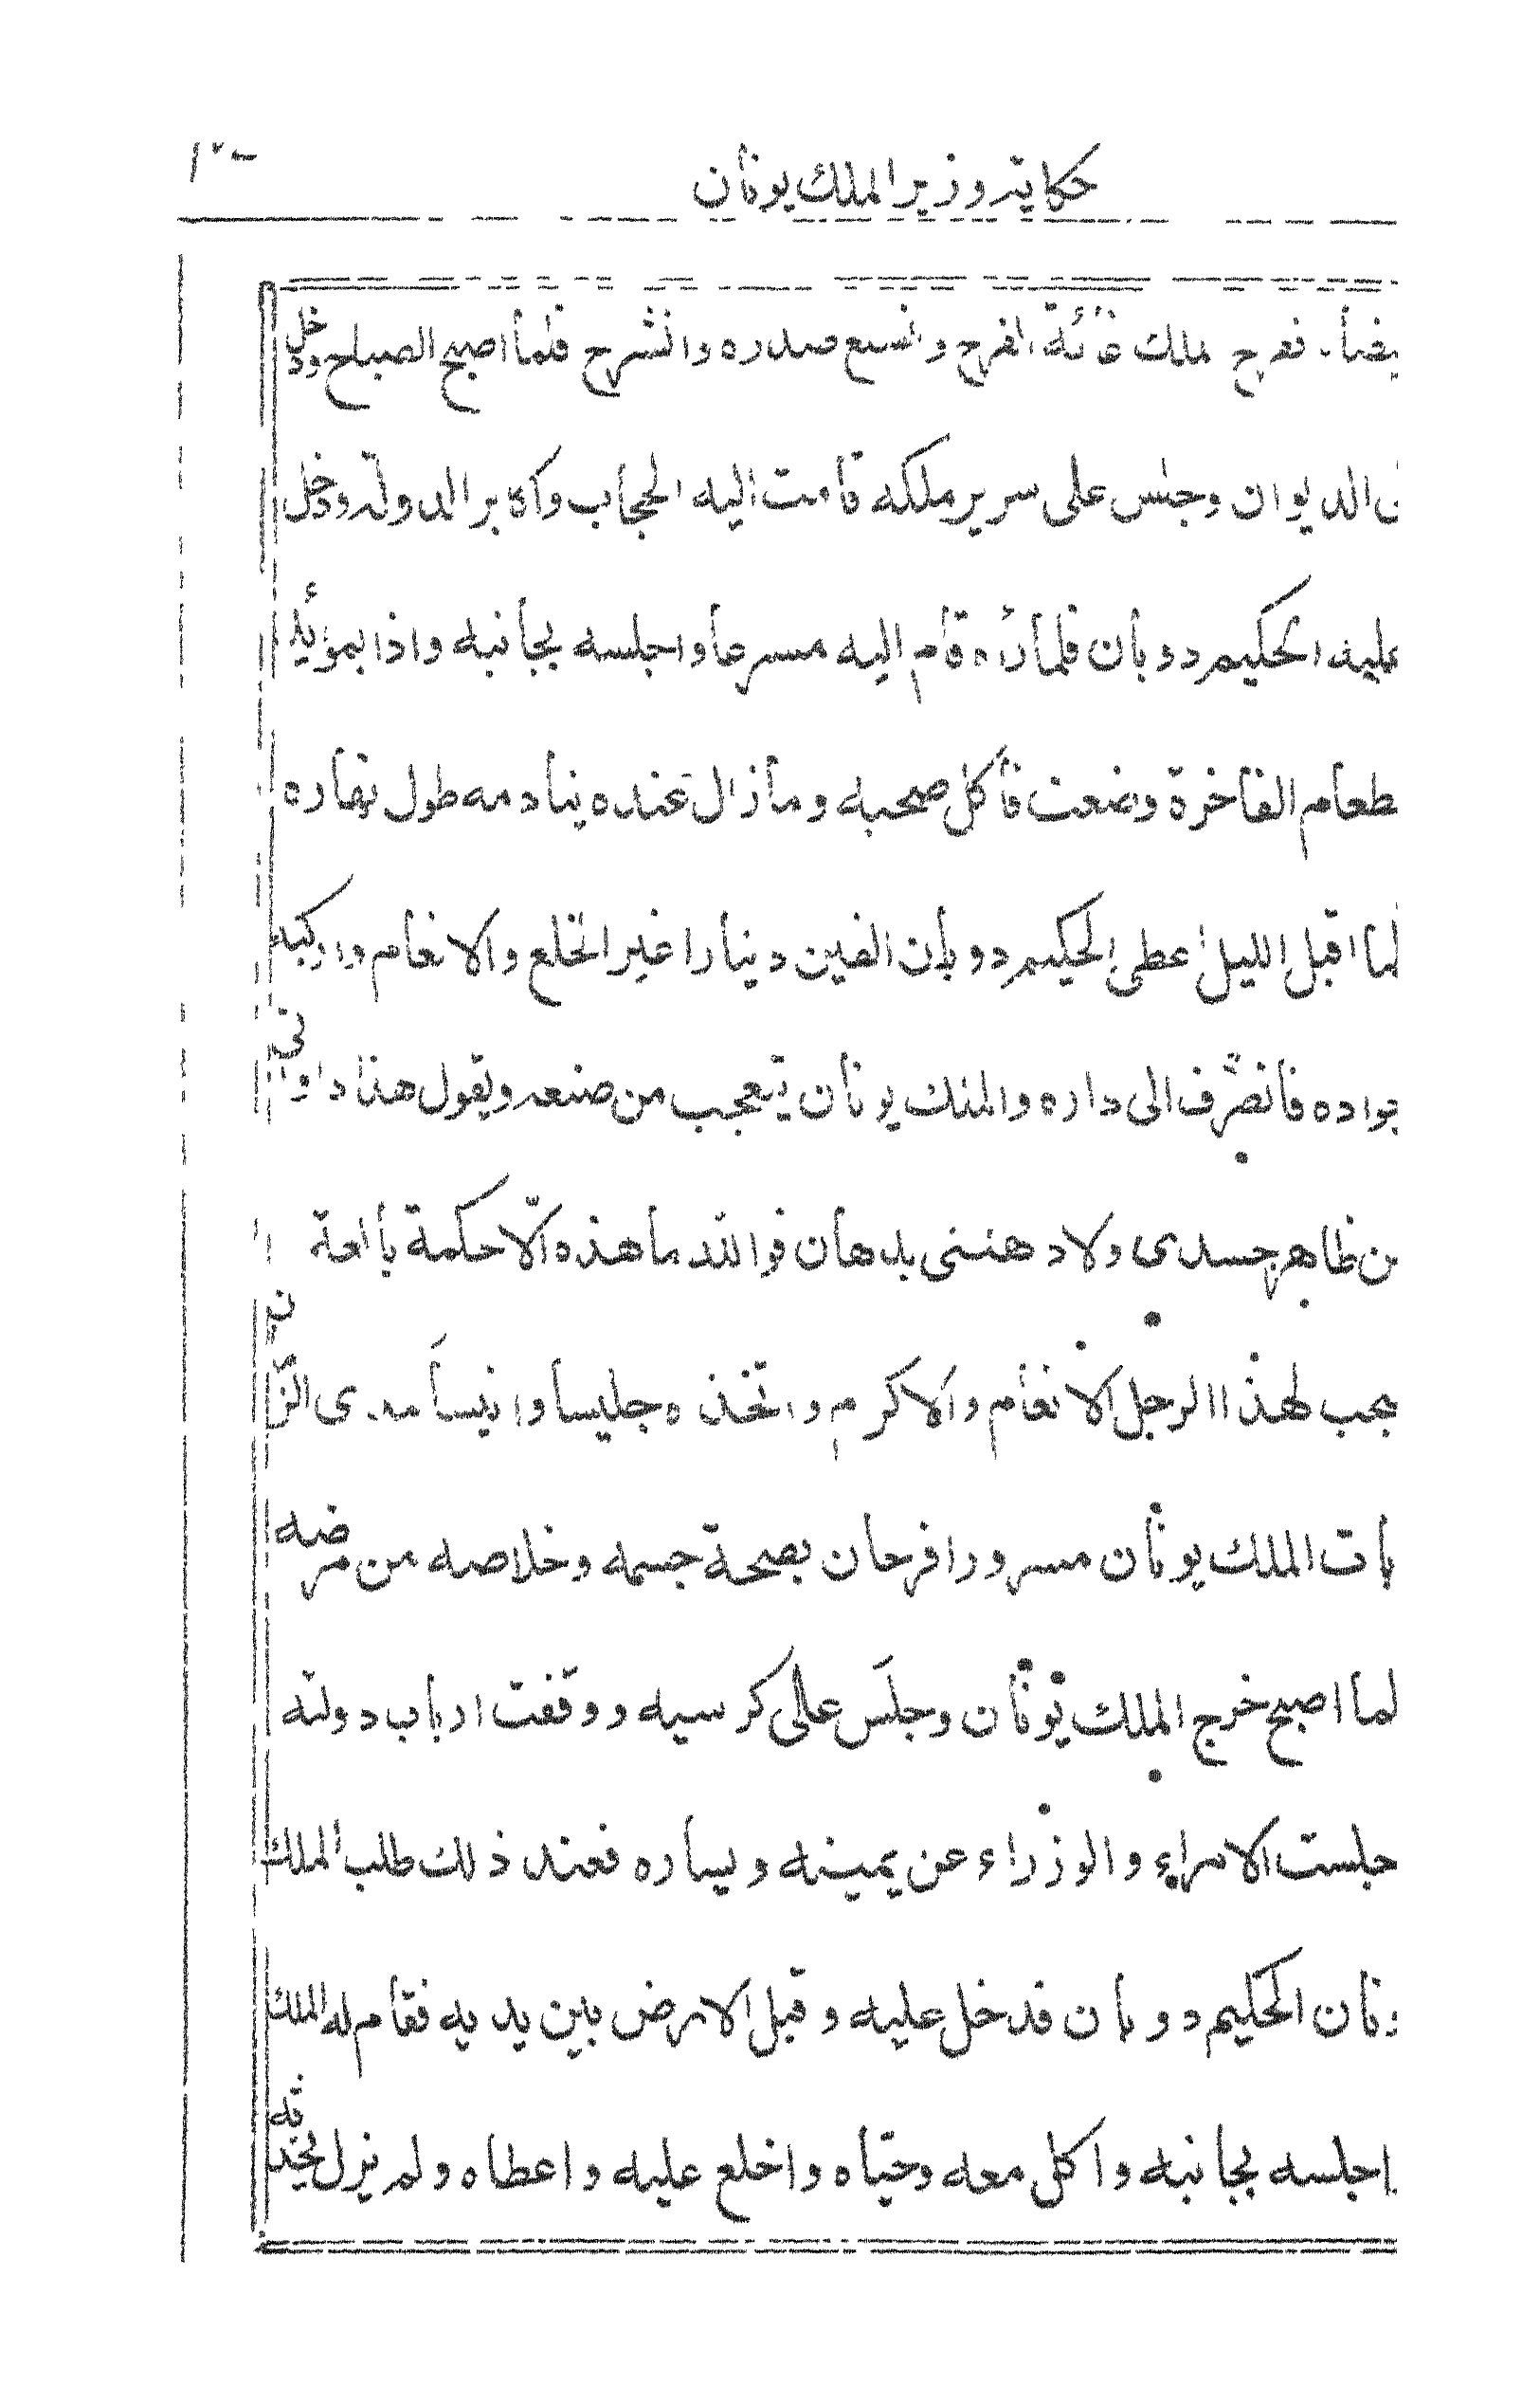 حكاية وزير الملك يونان
بيضا ففرح الملك غائة الفرح واتسع صدره وانشرح فلما اصبح الصباح ودخل
الى الديوان وجلس على سرير ملكه قامت اليه الحجاب واكابر الدولة ودخل
عليه الحكيم دوبان فلما رأه قام اليه مسرعا واجلسه بجانبه واذا بموائد
الطعام الفاخرة وضعت فأكل صحبه ومازال عنده ينادمه طول نهاره
فلما اقبل الليل اعطى الحكيم دوبان الفين دينارا غير الخلع والانعام واركبه
جواده فانصرف الى داره والملك يونان يتعجب من صنعه ويقول هذا داوانى
من ظاهر جسدى ولا دهننى بدهان فوالله ما هذه الا حكمة بالغة
يجب لهذا الرجل الانعام والاكرام واتخذه جليسا وانيسا مدى الزمان
بات الملك يونان مسرورا فرحان بصحة جسمه وخلاصه من مرضه
فلما اصبح خرج الملك يونان وجلس على كرسيه ووقفت ارباب دولته
وجلست الامراء والوزراء عن يمينه ويساره فعند ذلك طلب الملك
يونان الحكيم دوبان فدخل عليه وقبل الارض بين يديه فقام له الملك
واجلسه بجانبه واكل معه وحياه واخلع عليه واعطاه ولم يزل يتحدثه